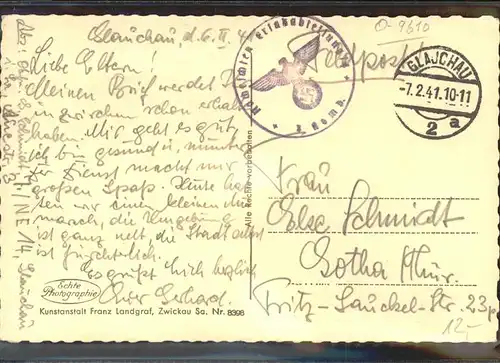 Glauchau, d. 6. II. 41
Liebe Eltern!
Meinen Brief werdet Ihr
inzwischen schon erhalten
haben. Mir geht es gut,
ich bin gesund u. munter
Der Dienst macht mir
großen Spaß. Heute ha-
ben wir einen kleinen Aus-
marsch, die Umgebung
ist ganz nett, die Stadt selbst
ist fürchterlich.
Es grüßt Euch herzlich
Euer Gerhard.
Echte
Photographie
Kunstanstalt Franz Landgraf, Zwickau Sa. Nr. 8398
Alle Rechte vorbehalten
Feldpost
O-9610
GLAUCHAU
-7.2.41.10-11
2 a
Frau
Else Schmidt
Gotha Thür.
Fritz-Sauckel-Str. 23p
12,-
NE 14, Glauchau